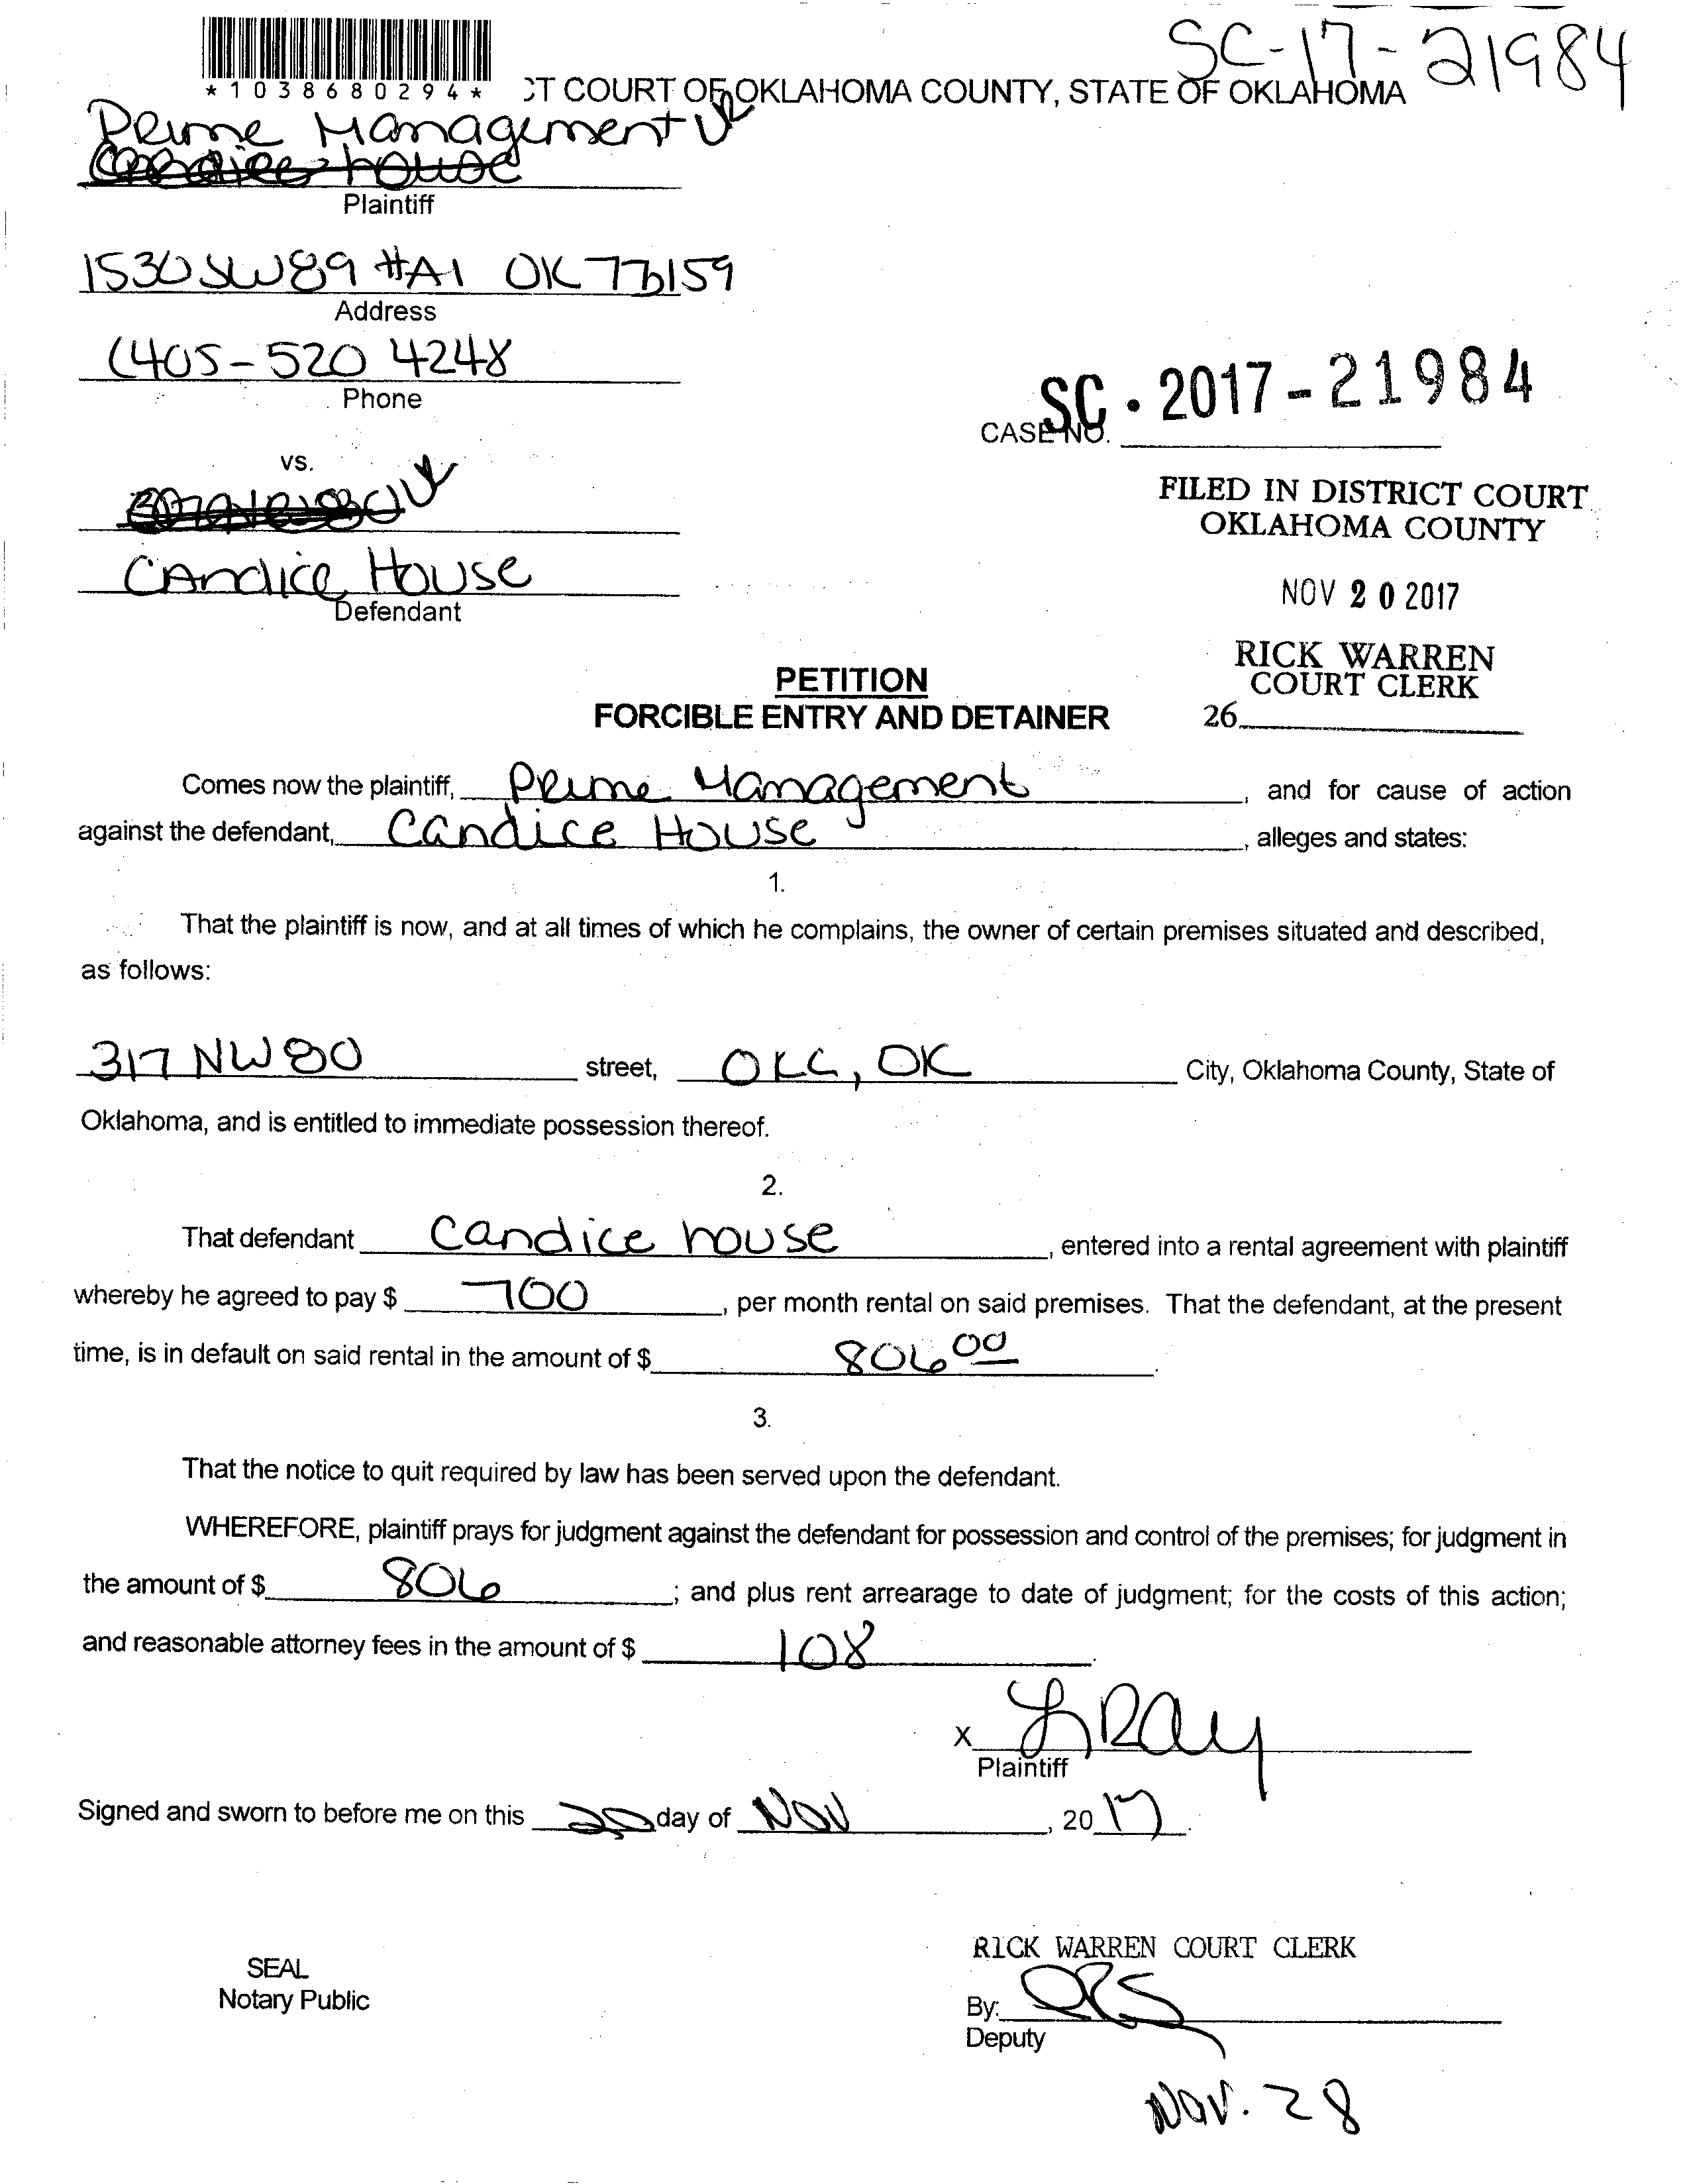 SC-17-21984
*1038680294*
CT COURT OF OKLAHOMA COUNTY, STATE OF OKLAHOMA
Prime Management
Candice House
Plaintiff
1530 SW 89 #A1 OK 73159
Address
(405-520 4248
Phone
SC • 2017-21984
CASE NO.
vs.
FILED IN DISTRICT COURT
OKLAHOMA COUNTY
Candice House
Defendant
NOV 20 2017
RICK WARREN
COURT CLERK
26
PETITION
FORCIBLE ENTRY AND DETAINER
Comes now the plaintiff, Prime Management, and for cause of action
against the defendant, Candice House, alleges and states:
1.
That the plaintiff is now, and at all times of which he complains, the owner of certain premises situated and described,
as follows:
317 NW 80 street, OKC, OK City, Oklahoma County, State of
Oklahoma, and is entitled to immediate possession thereof.
2.
That defendant Candice house, entered into a rental agreement with plaintiff
whereby he agreed to pay $ 700, per month rental on said premises. That the defendant, at the present
time, is in default on said rental in the amount of $ 806 00.
3.
That the notice to quit required by law has been served upon the defendant.
WHEREFORE, plaintiff prays for judgment against the defendant for possession and control of the premises; for judgment in
the amount of $ 806; and plus rent arrearage to date of judgment; for the costs of this action;
and reasonable attorney fees in the amount of $ 108.
X LRay
Plaintiff
Signed and sworn to before me on this 20 day of Nov, 2017.
SEAL
Notary Public
RICK WARREN COURT CLERK
By:
Deputy
Nov. 28